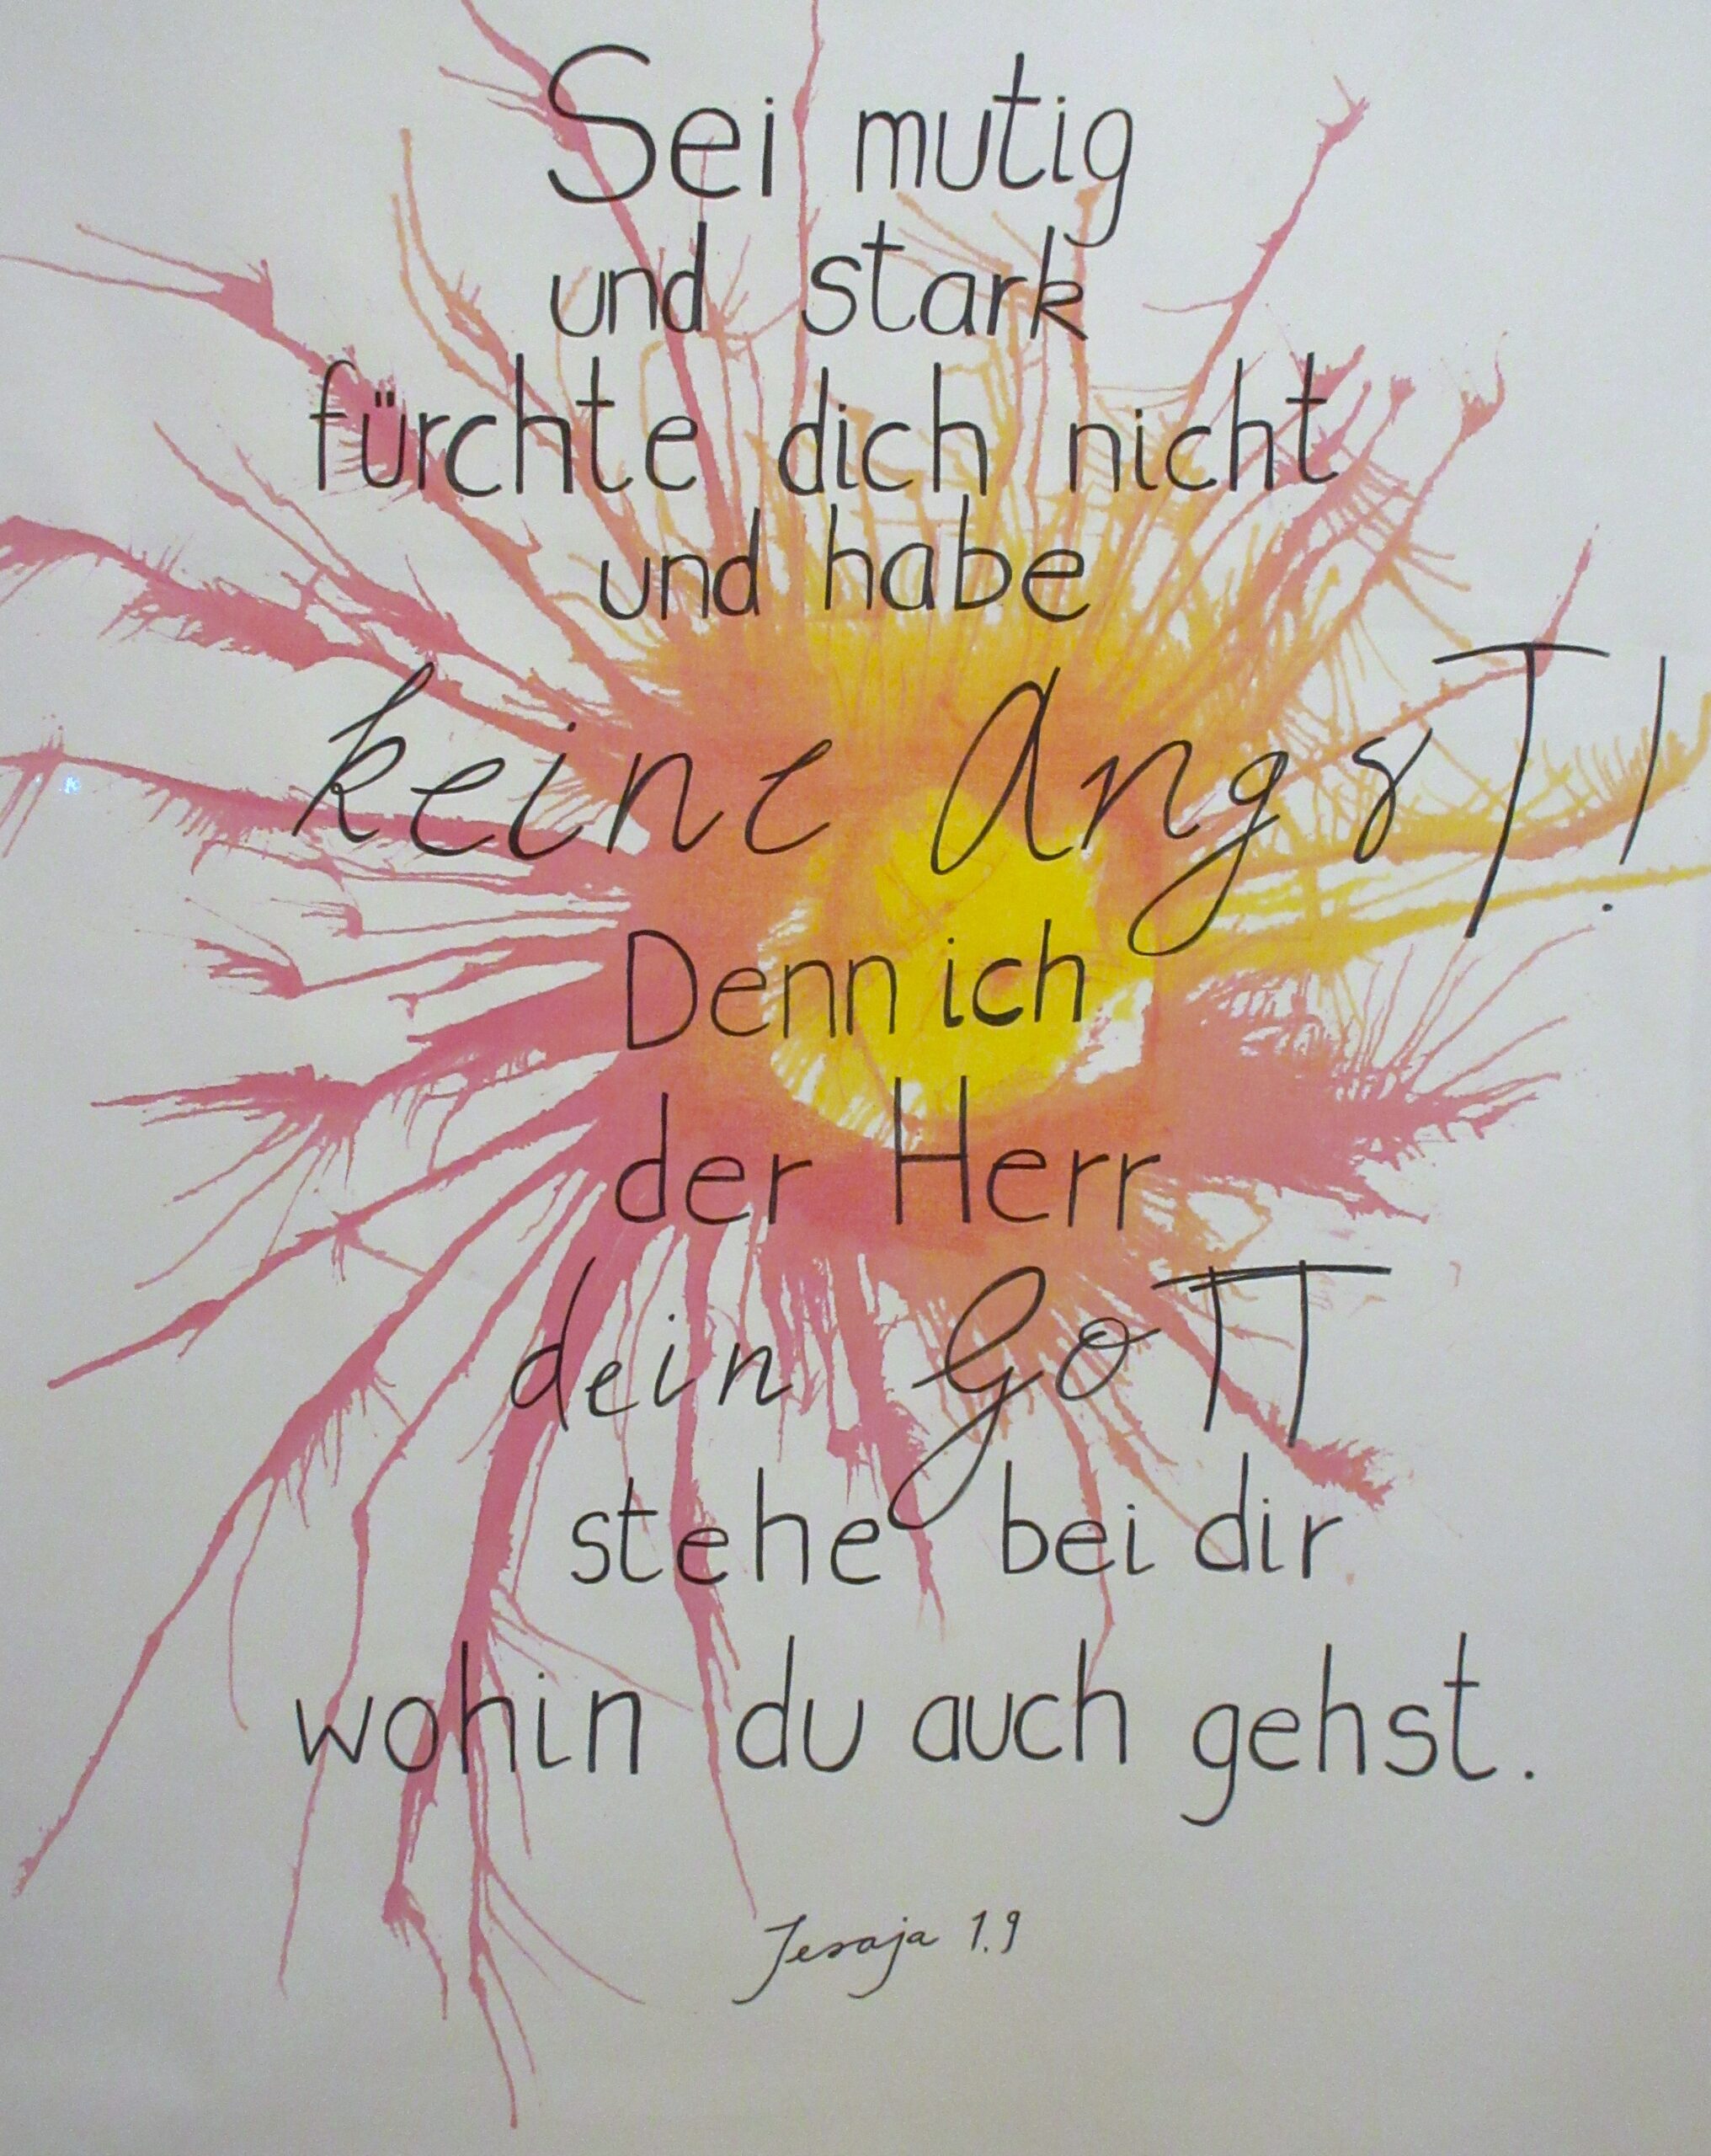 Sei mutig
und stark
fürchte dich nicht
und habe
keine AngsT!
Denn ich
der Herr
dein GoTT
stehe bei dir
wohin du auch gehst.
Jesaja 1.9